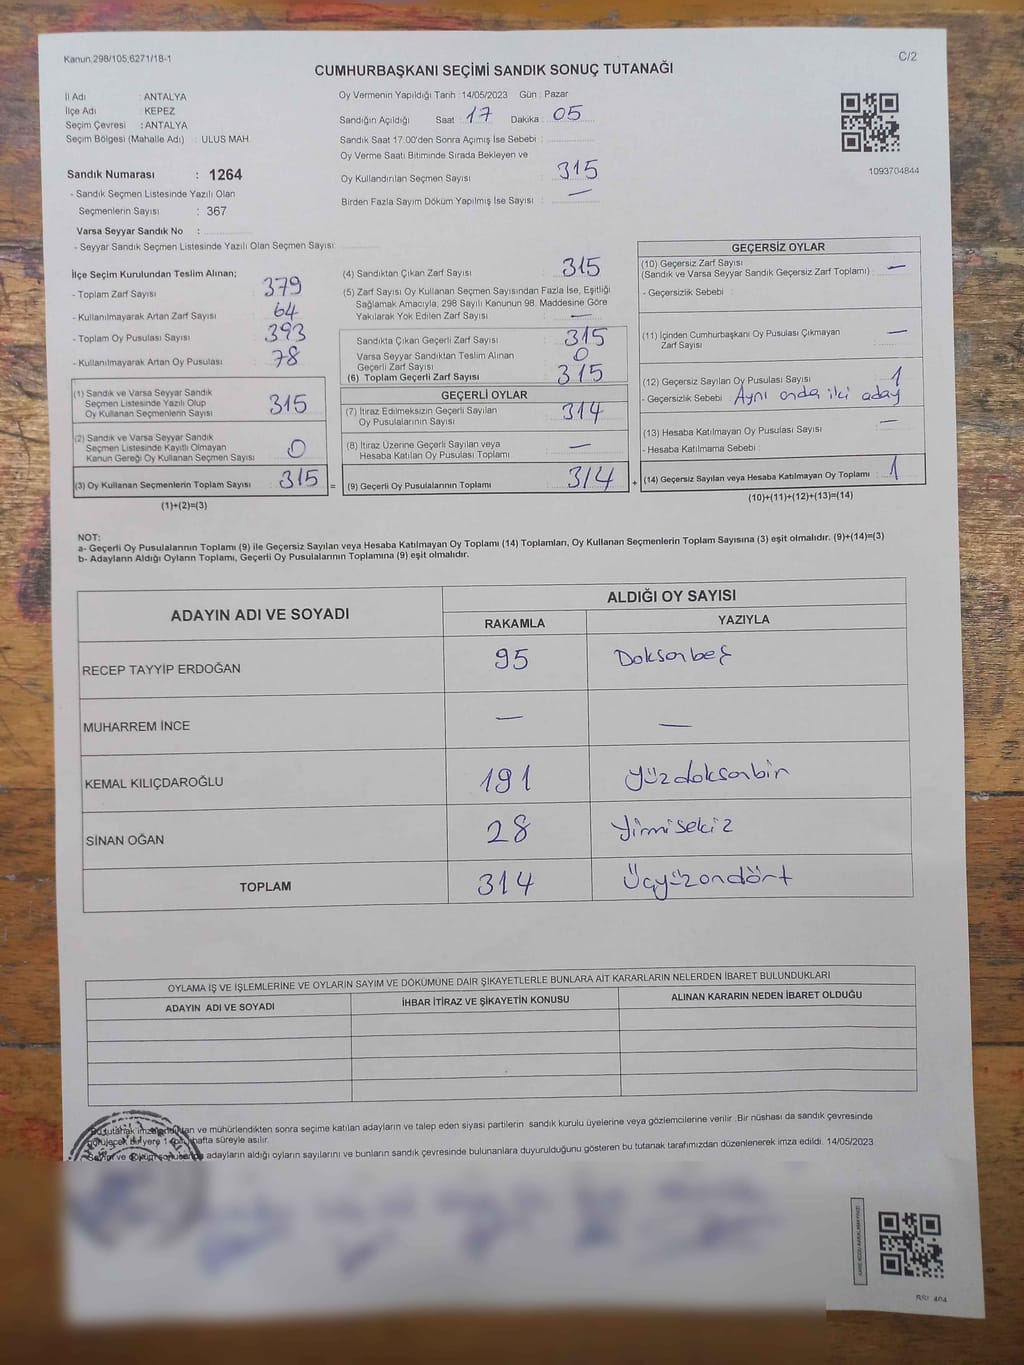 Kanun,298/105,6271/18-1
C/2
CUMHURBAŞKANI SEÇİMİ SANDIK SONUÇ TUTANAĞI
İl Adı : ANTALYA
İlçe Adı : KEPEZ
Seçim Çevresi : ANTALYA
Seçim Bölgesi (Mahalle Adı) : ULUS MAH.
Sandık Numarası : 1264
- Sandık Seçmen Listesinde Yazılı Olan
Seçmenlerin Sayısı : 367
Varsa Seyyar Sandık No :
- Seyyar Sandık Seçmen Listesinde Yazılı Olan Seçmen Sayısı:
Oy Vermenin Yapıldığı Tarih : 14/05/2023 Gün : Pazar
Sandığın Açıldığı Saat : 17 Dakika : 05
Sandık Saat 17.00'den Sonra Açımış İse Sebebi :
Oy Verme Saati Bitiminde Sırada Bekleyen ve
Oy Kullandırılan Seçmen Sayısı : 315
Birden Fazla Sayım Döküm Yapılmış İse Sayısı : —
1093704844
İlçe Seçim Kurulundan Teslim Alınan;
- Toplam Zarf Sayısı : 379
- Kullanılmayarak Artan Zarf Sayısı : 64
- Toplam Oy Pusulası Sayısı : 393
- Kullanılmayarak Artan Oy Pusulası : 78
(1) Sandık ve Varsa Seyyar Sandık
Seçmen Listesinde Yazılı Olup
Oy Kullanan Seçmenlerin Sayısı : 315
(2) Sandık ve Varsa Seyyar Sandık
Seçmen Listesinde Kayıtlı Olmayan
Kanun Gereği Oy Kullanan Seçmen Sayısı : 0
(3) Oy Kullanan Seçmenlerin Toplam Sayısı : 315 =
(1)+(2)=(3)
(4) Sandıktan Çıkan Zarf Sayısı : 315
(5) Zarf Sayısı Oy Kullanan Seçmen Sayısından Fazla İse, Eşitliği
Sağlamak Amacıyla, 298 Sayılı Kanunun 98. Maddesine Göre
Yakılarak Yok Edilen Zarf Sayısı : —
Sandıkta Çıkan Geçerli Zarf Sayısı : 315
Varsa Seyyar Sandıktan Teslim Alınan
Geçerli Zarf Sayısı : 0
(6) Toplam Geçerli Zarf Sayısı : 315
GEÇERLİ OYLAR
(7) İtiraz Edilmeksizin Geçerli Sayılan
Oy Pusulalarının Sayısı : 314
(8) İtiraz Üzerine Geçerli Sayılan veya
Hesaba Katılan Oy Pusulası Toplamı : —
(9) Geçerli Oy Pusulalarının Toplamı : 314 +
GEÇERSİZ OYLAR
(10) Geçersiz Zarf Sayısı
(Sandık ve Varsa Seyyar Sandık Geçersiz Zarf Toplamı) : —
- Geçersizlik Sebebi :
(11) İçinden Cumhurbaşkanı Oy Pusulası Çıkmayan
Zarf Sayısı : —
(12) Geçersiz Sayılan Oy Pusulası Sayısı : 1
- Geçersizlik Sebebi : Aynı anda iki aday
(13) Hesaba Katılmayan Oy Pusulası Sayısı : —
- Hesaba Katılmama Sebebi :
(14) Geçersiz Sayılan veya Hesaba Katılmayan Oy Toplamı : 1
(10)+(11)+(12)+(13)=(14)
NOT:
a- Geçerli Oy Pusulalarının Toplamı (9) ile Geçersiz Sayılan veya Hesaba Katılmayan Oy Toplamı (14) Toplamları, Oy Kullanan Seçmenlerin Toplam Sayısına (3) eşit olmalıdır. (9)+(14)=(3)
b- Adayların Aldığı Oyların Toplamı, Geçerli Oy Pusulalarının Toplamına (9) eşit olmalıdır.
ADAYIN ADI VE SOYADI
ALDIĞI OY SAYISI
RAKAMLA YAZIYLA
RECEP TAYYİP ERDOĞAN 95 Doksanbeş
MUHARREM İNCE — —
KEMAL KILIÇDAROĞLU 191 Yüzdoksanbir
SİNAN OĞAN 28 Yirmisekiz
TOPLAM 314 Üçyüzondört
OYLAMA İŞ VE İŞLEMLERİNE VE OYLARIN SAYIM VE DÖKÜMÜNE DAİR ŞİKAYETLERLE BUNLARA AİT KARARLARIN NELERDEN İBARET BULUNDUKLARI
ADAYIN ADI VE SOYADI İHBAR İTİRAZ VE ŞİKAYETİN KONUSU ALINAN KARARIN NEDEN İBARET OLDUĞU
Bu tutanak imzalandıktan ve mühürlendikten sonra seçime katılan adayların ve talep eden siyasi partilerin sandık kurulu üyelerine veya gözlemcilerine verilir. Bir nüshası da sandık çevresinde
görülecek bir yere 1 (bir) hafta süreyle asılır.
adayların aldığı oyların sayılarını ve bunların sandık çevresinde bulunanlara duyurulduğunu gösteren bu tutanak tarafımızdan düzenlenerek imza edildi. 14/05/2023